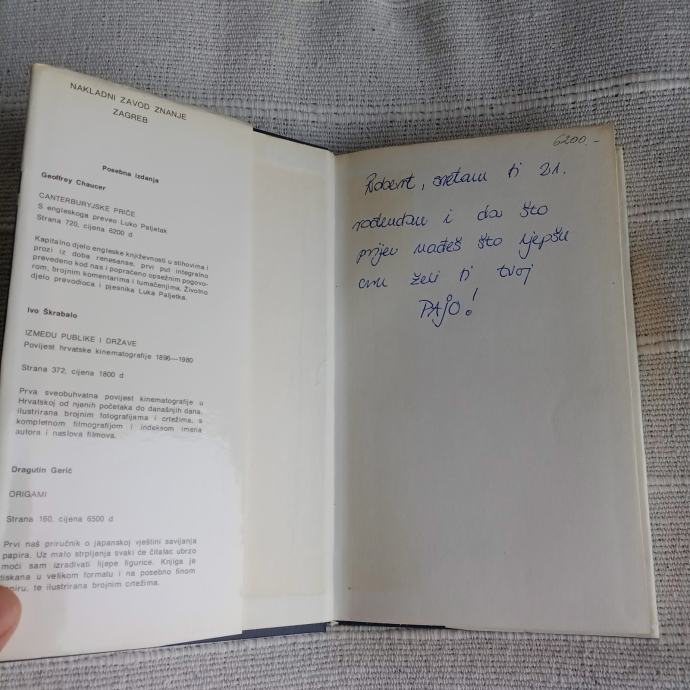 NAKLADNI ZAVOD ZNANJE
ZAGREB
Posebna izdanja
Geoffrey Chaucer
CANTERBURYJSKE PRIČE
S engleskoga preveo Luko Paljetak
Strana 720, cijena 6200 d
Kapitalno djelo engleske književnosti u stihovima i
prozi iz doba renesanse, prvi put integralno
prevedeno kod nas i popraćeno opsežnim pogovo-
rom, brojnim komentarima i tumačenjima. Životno
djelo prevodioca i pjesnika Luka Paljetka.
Ivo Škrabalo
IZMEĐU PUBLIKE I DRŽAVE
Povijest hrvatske kinematografije 1896—1980
Strana 372, cijena 1800 d
Prva sveobuhvatna povijest kinematografije u
Hrvatskoj od njenih početaka do današnjih dana,
ilustrirana brojnim fotografijama i crtežima, s
kompletnom filmografijom i indeksom imena
autora i naslova filmova.
Dragutin Gerić
ORIGAMI
Strana 160, cijena 6500 d
Prvi naš priručnik o japanskoj vještini savijanja
papira. Uz malo strpljenja svaki će čitalac ubrzo
moći sam izrađivati lijepe figurice. Knjiga je
tiskana u velikom formatu i na posebno finom
papiru, te ilustrirana brojnim crtežima.
6200,-
Robert, sretan ti 21.
rođendan i da što
prije nađeš što ljepšu
crnu želi ti tvoj
PAJO!